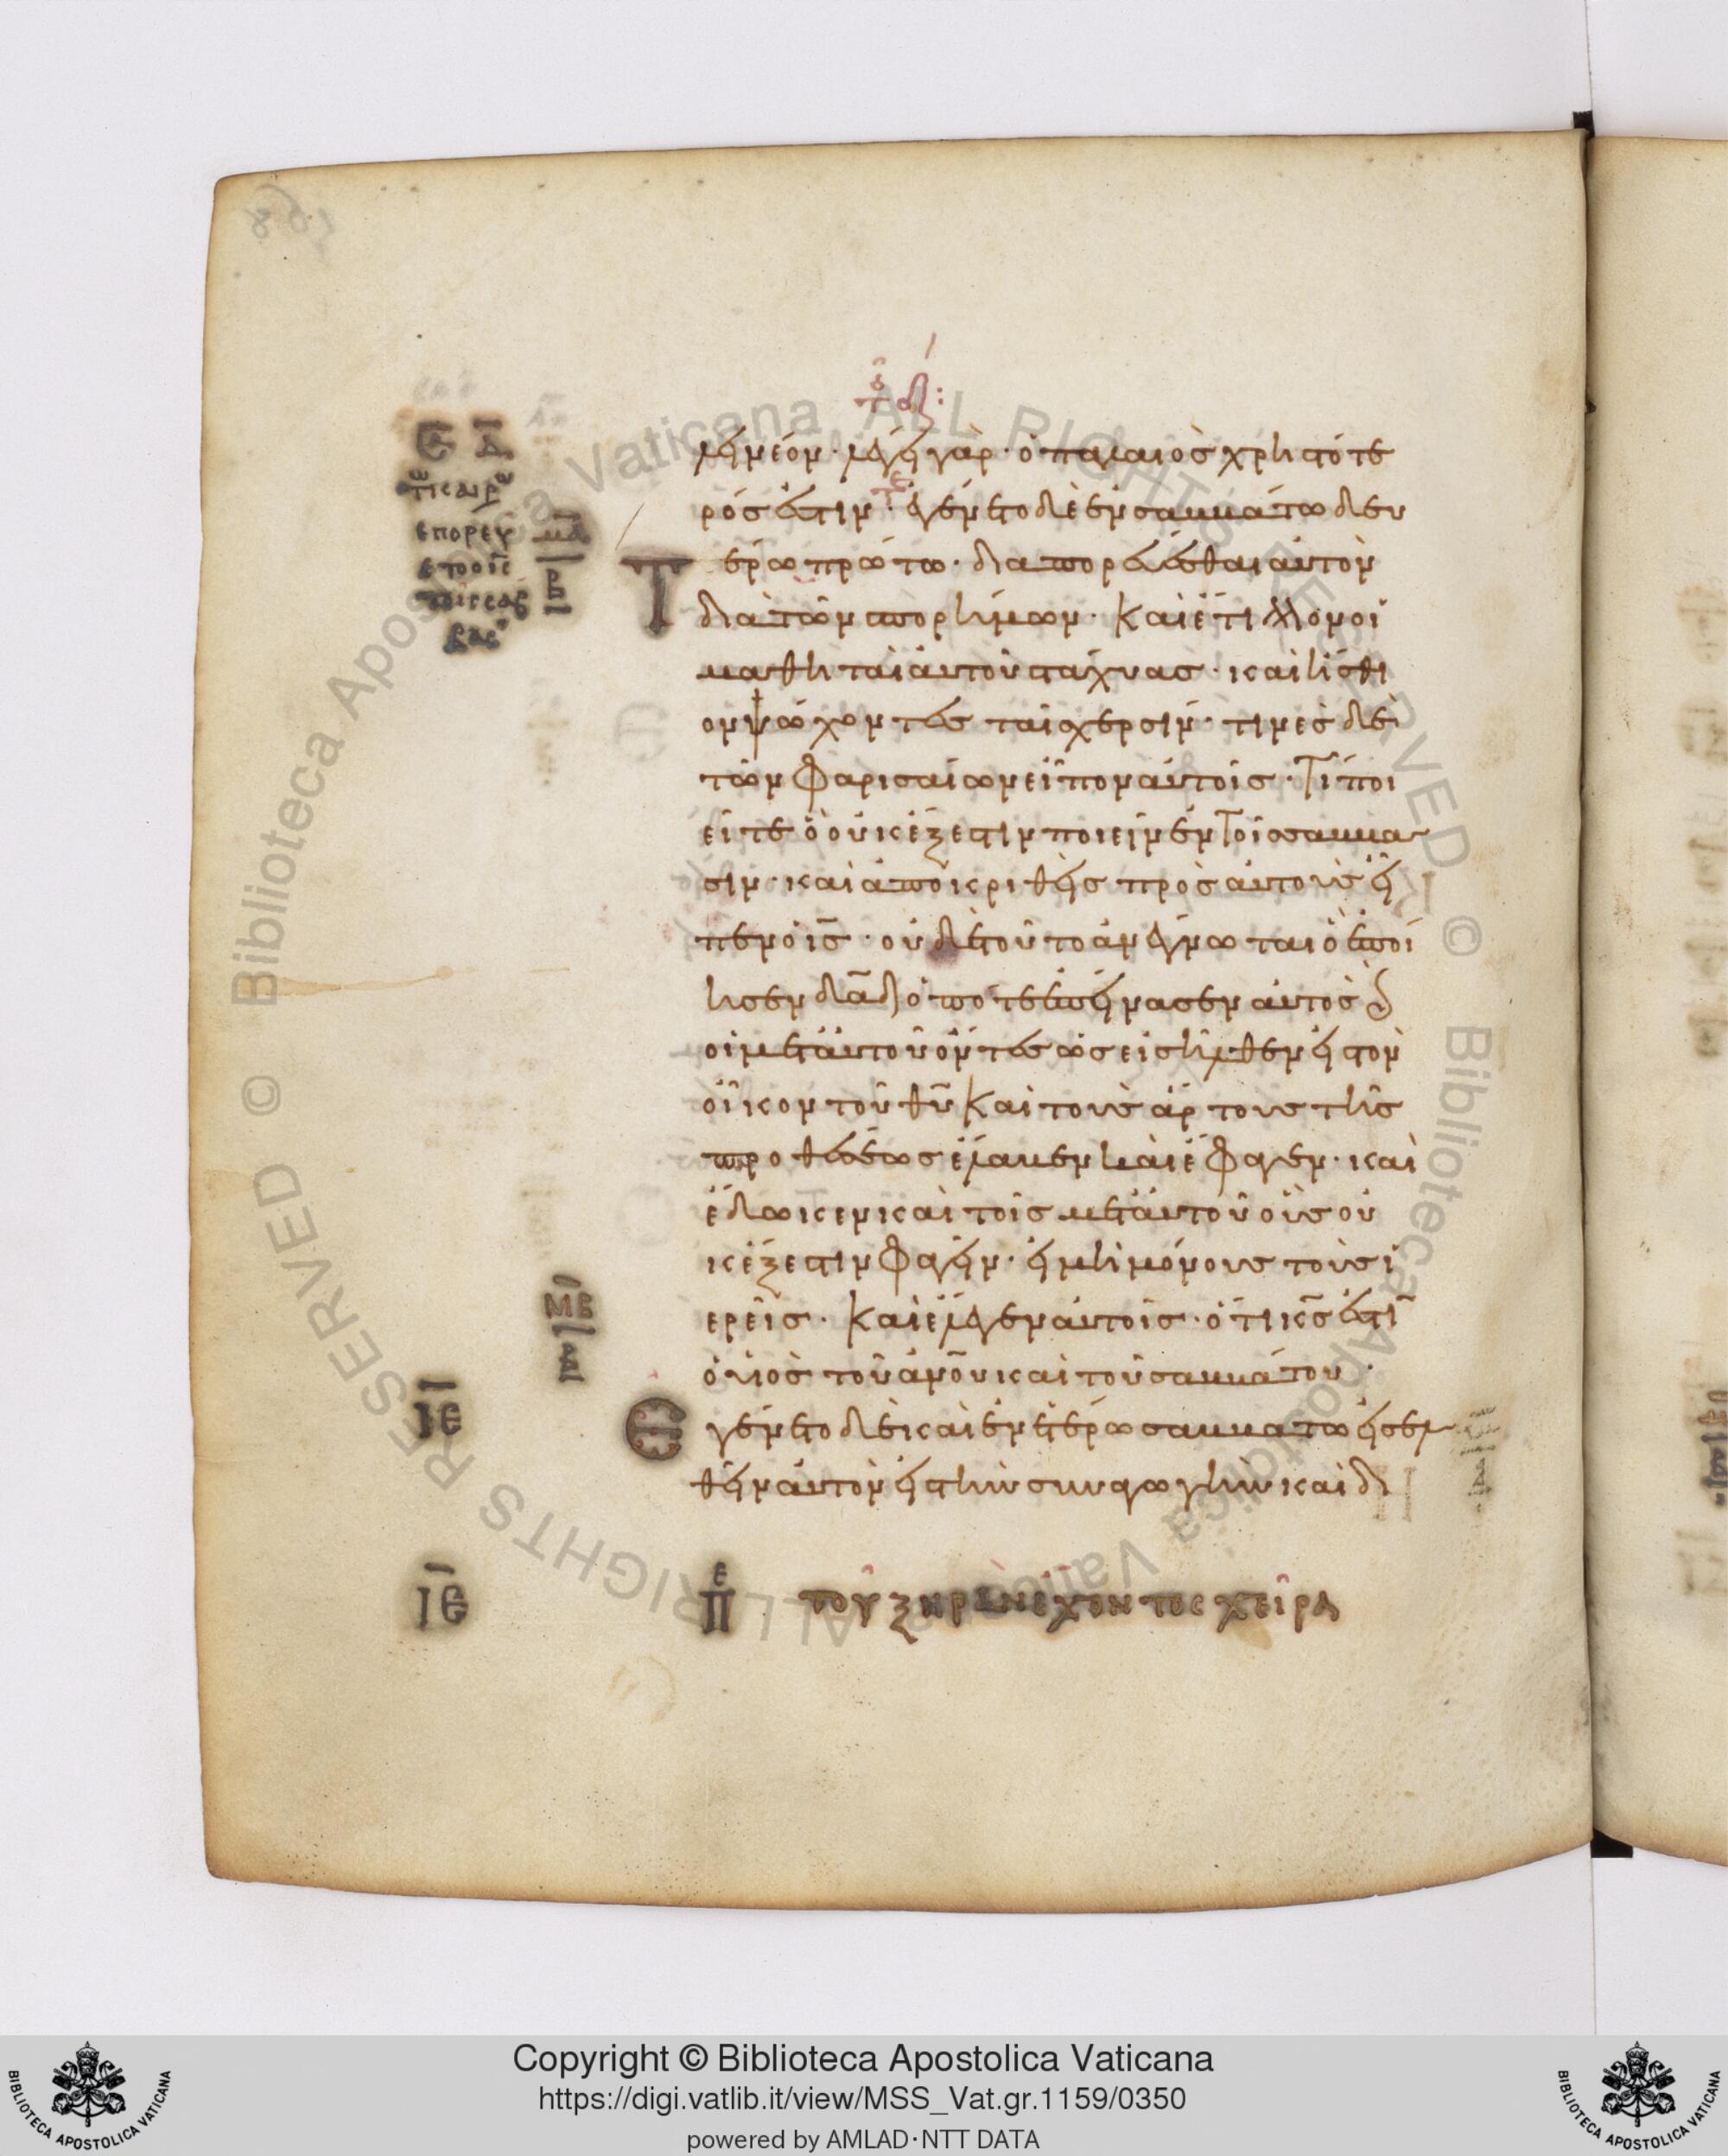 λει νεον· λεγει γαρ· ὁ παλαιὸς χρηστότε
ρός ἐστιν· ἐγένετο δὲ ἐν σαββάτω δευ
Τ
ερω πρώτω· διαπορεύεσθαι αὐτὸν
διὰ τῶν σπορίμων· Καὶ ἔτιλλον οἱ
μαθηταὶ αὐτοῦ στάχυας· καὶ ἤσθι
ον ψώχοντες ταῖς χερσίν· τινὲς δὲ
τῶν Φαρισαίων εἶπον αὐτοῖς· Τί ποι
εῖτε ὃ οὐκ ἔξεστιν ποιεῖν ἐν τοῖς σάββα
σιν· καὶ ἀποκριθεὶς πρὸς αὐτοὺς εἶ
πεν ὁ ις· οὐδὲ τοῦτο ἀνέγνωται ὃ ἐποί
ησεν δαδ ὁπότε ἐπείνασεν αὐτὸς καὶ
οἱ μετ' αὐτοῦ ὄντες ὡς εἰσῆλθεν εἰς τὸν
οἶκον τοῦ θυ Καὶ τοὺς ἄρτους τῆς
προθέσεως ἔλαβεν καὶ ἔφαγεν· καὶ
ἔδωκεν καὶ τοῖς μετ' αὐτοῦ οὓς οὐ
κ ἔξεστιν φαγεῖν· εἰ μὴ μόνους τοὺς ἱ
ερεῖς· Καὶ ἔλεγεν αὐτοῖς· ὅτι κς ἐστι
ὁ υἱὸς τοῦ ανου καὶ τοῦ σαββάτου·
ΙΕ
Εγένετο δὲ καὶ ἐν ἑτέρω σαββάτω εἰσελ
θεῖν αὐτὸν εἰς τὴν συναγωγὴν καὶ δι
ΙΕ Πε του ξηρὰν ἔχοντος χεῖρα
Copyright © Biblioteca Apostolica Vaticana
https://digi.vatlib.it/view/MSS_Vat.gr.1159/0350
powered by AMLAD·NTT DATA